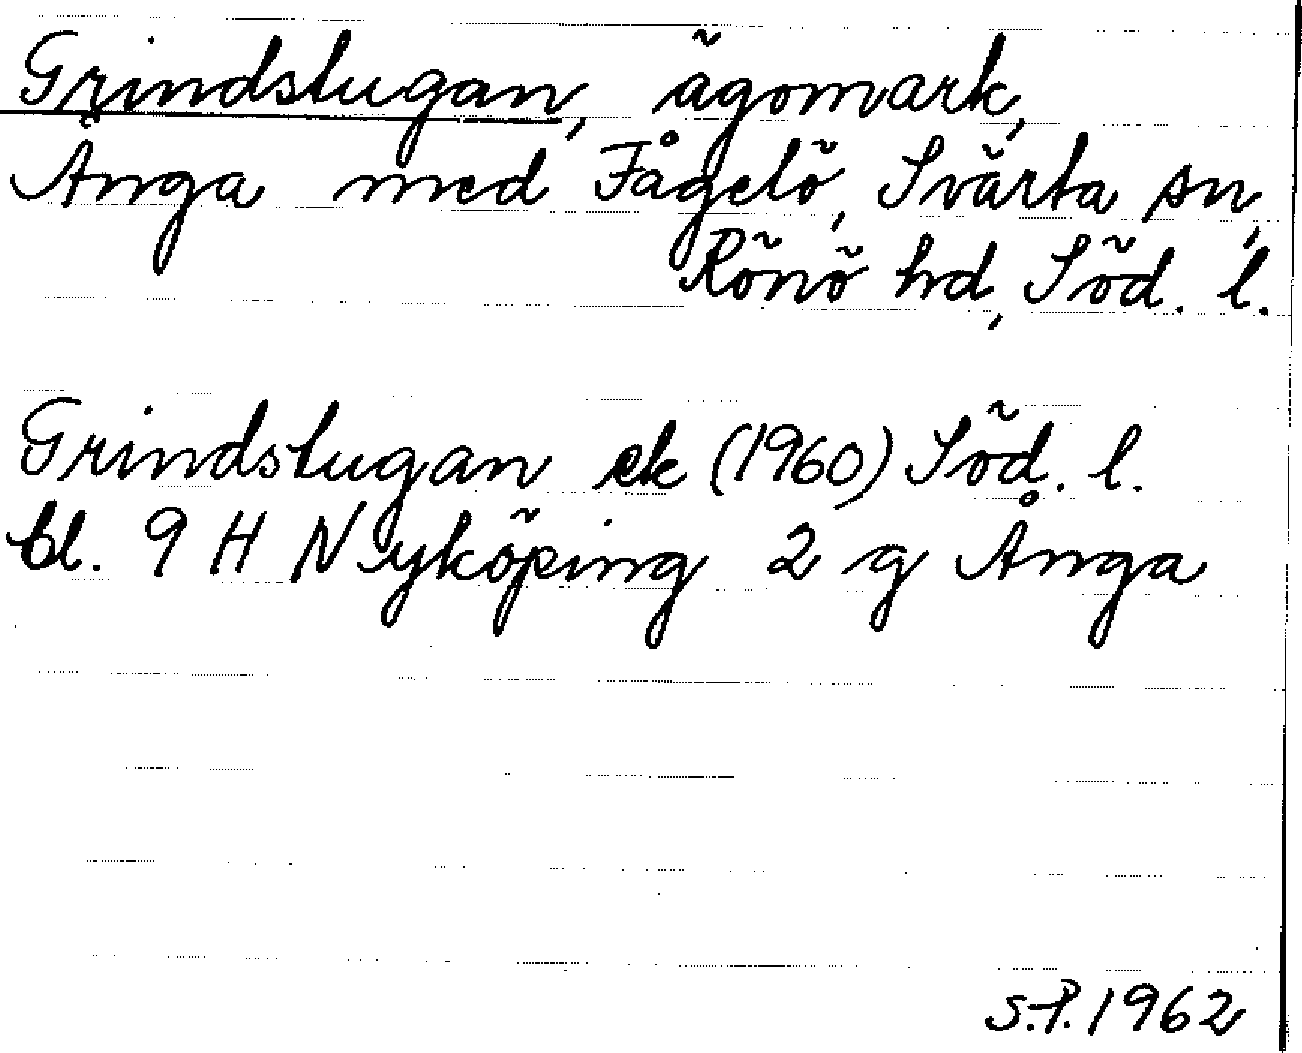 Grindstugan, ägomark,
Ånga med Fågelö, Svärta sn,
Rönö hd, Söd. l.
Grindstugan ek (1960) Söd. l.
bl. 9 H Nyköping 2 g Ånga
S.P. 1962